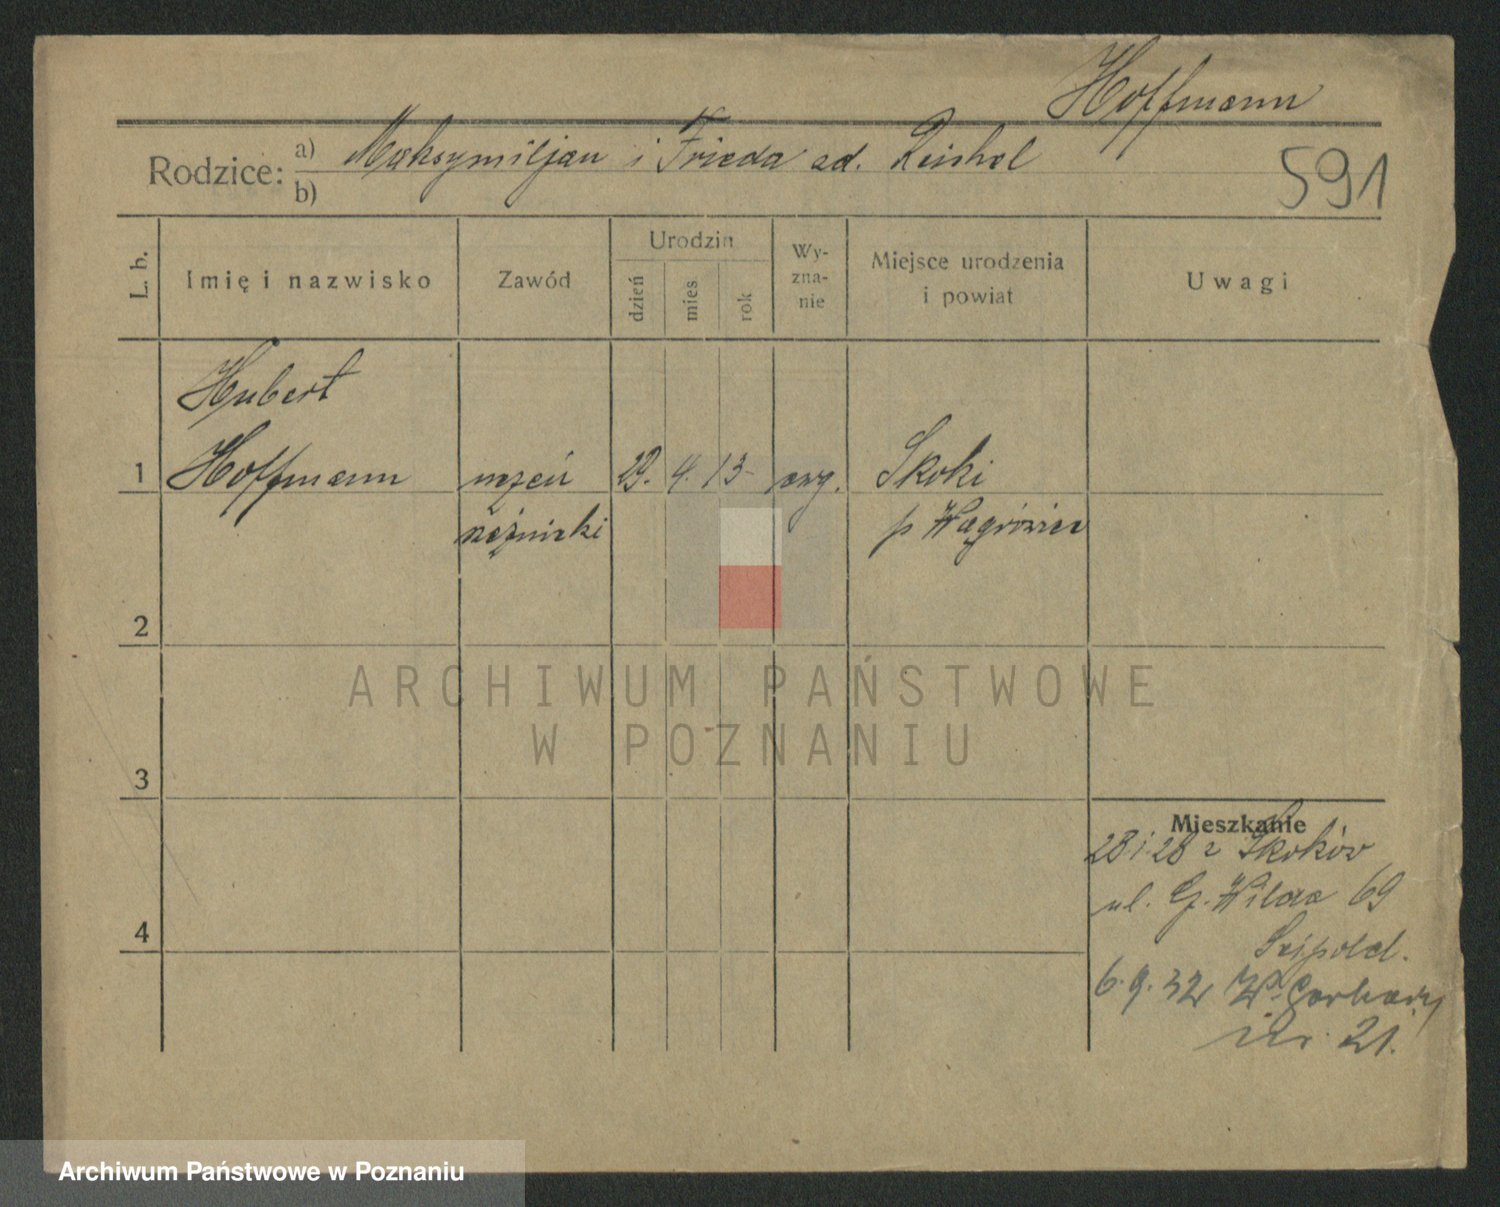 Hoffmann
Rodzice: a) Maksymiljan i Frieda zd. Reichel
b)
591
L. b. Imię i nazwisko Zawód Urodzin dzień mies. rok Wy-zna-nie Miejsce urodzenia i powiat Uwagi
Hubert
1 Hoffmann uczeń 29. 4. 13 ewg. Skoki
rzeźnicki p Wągrowiec
2
3
4
Mieszkanie
28 i 28 z Skoków
ul. G. Wilda 69
6.9.32 W. Garbary
nr. 21.
ARCHIWUM PAŃSTWOWE
W POZNANIU
Archiwum Państwowe w Poznaniu